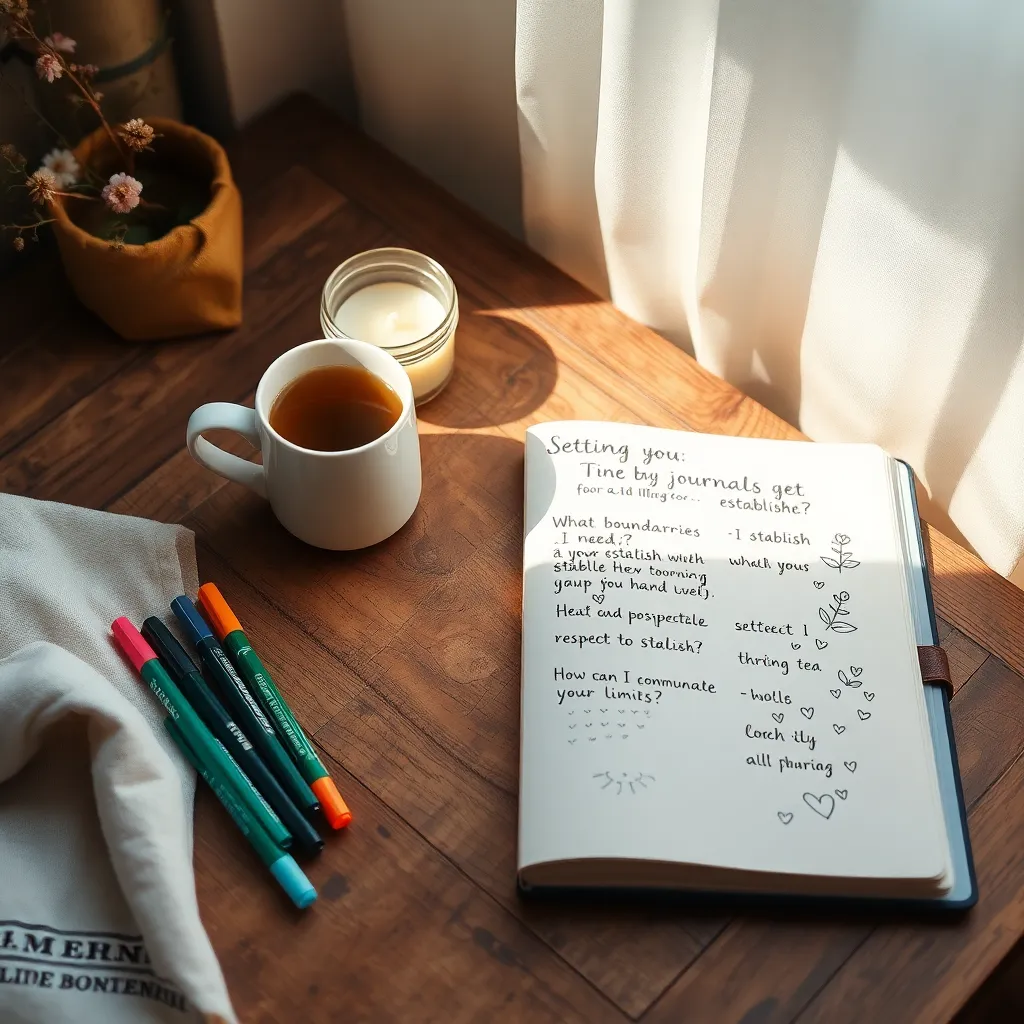 Setting you:
Tine by journals get
for a establishe?
What boundarries
.I need;?
a your establish with
stablle Hex toorning
yaup you hand
Heat and posjpectable
respect to stalish?
How can I commuate
your limits?
-I stablish
whalh yous
setteect I
thring tea
-wolls
Lorch ily
all pharing
LINE